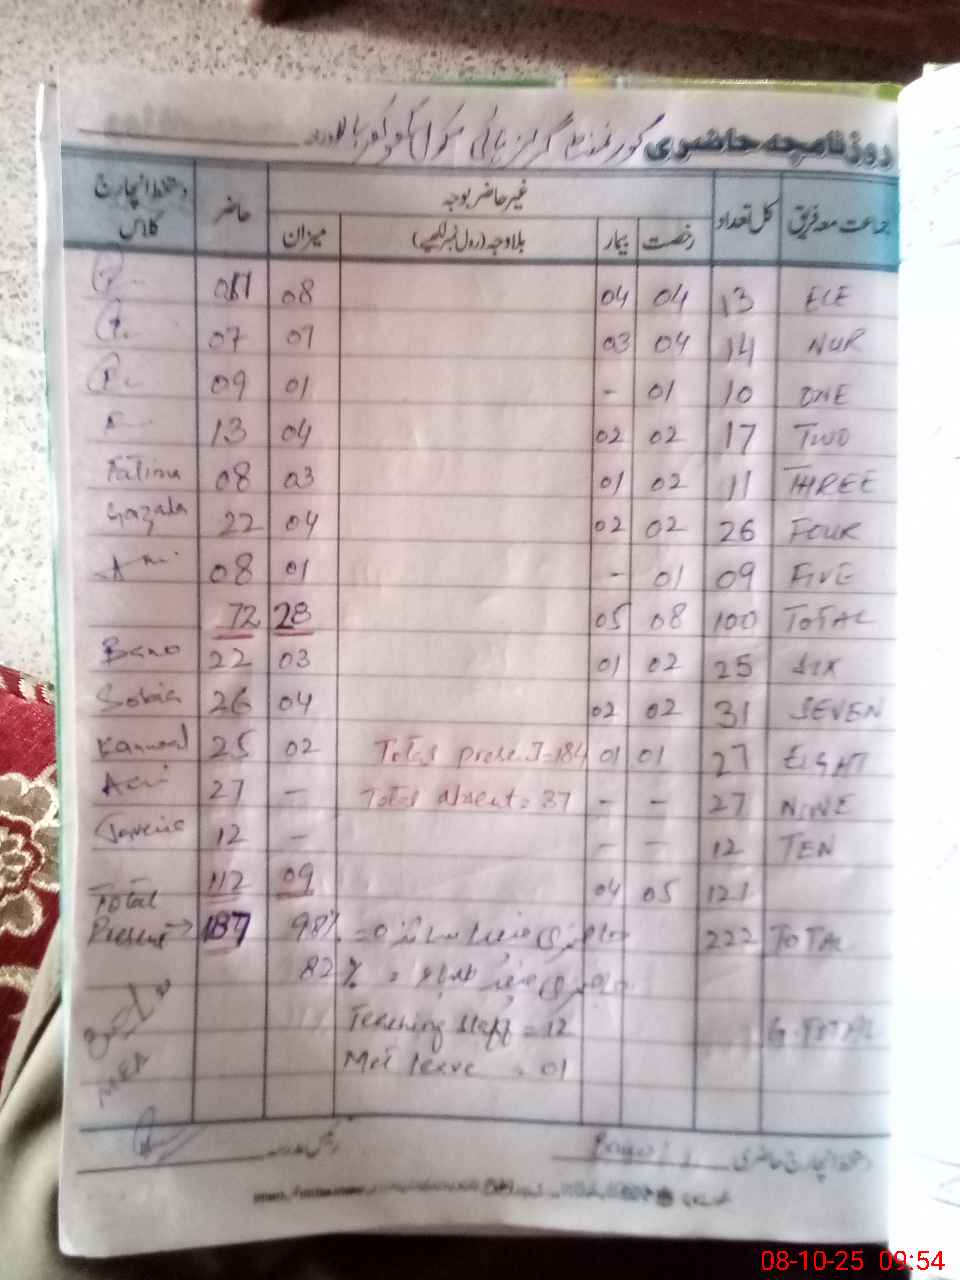 روزنامچہ حاضری گورنمنٹ گرلز ہائی
جماعت معہ فریق کل تعداد غیر حاضر بوجہ حاضر دستخط انچارج کلاس
رخصت بیمار بلاوجہ (رول نمبر لکھیے) میزان
ECE 13 04 04 08
NUR 14 04 03 07 07
ONE 10 01 - 01 09
TWO 17 02 02 04 13
THREE 11 02 01 03 08 Fatima
FOUR 26 02 02 04 22 Gazala
FIVE 09 01 - 01 08
TOTAL 100 08 05 28 72
SIX 25 02 01 03 22 Bano
SEVEN 31 02 02 04 26 Sobia
EIGHT 27 01 01 Total present=184 02 25 Kanwal
NINE 27 - - Total absent = 37 - 27
TEN 12 - - - 12
121 05 04 09 112 Total
TOTAL 222 حاضری فیصد اساتذہ = 98% Present →
حاضری فیصد طلباء = % 82
G.TOTAL Teaching staff = 12
Mat leave = 01
MEA
دستخط انچارج حاضری
08-10-25 09:54